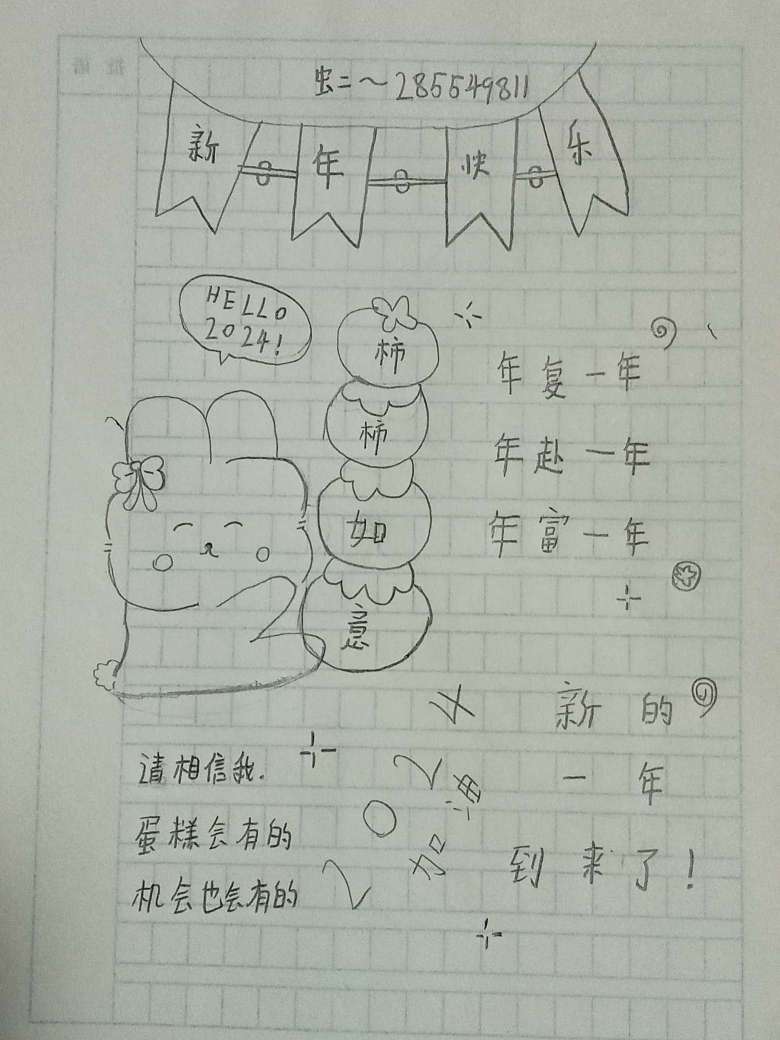 虫二～285549811
新年快乐
HELLO
2024!
柿
柿
如
意
年复一年
年赴一年
年富一年
请相信我.
蛋糕会有的
机会也会有的
2024
加油
新的
一年
到来了!